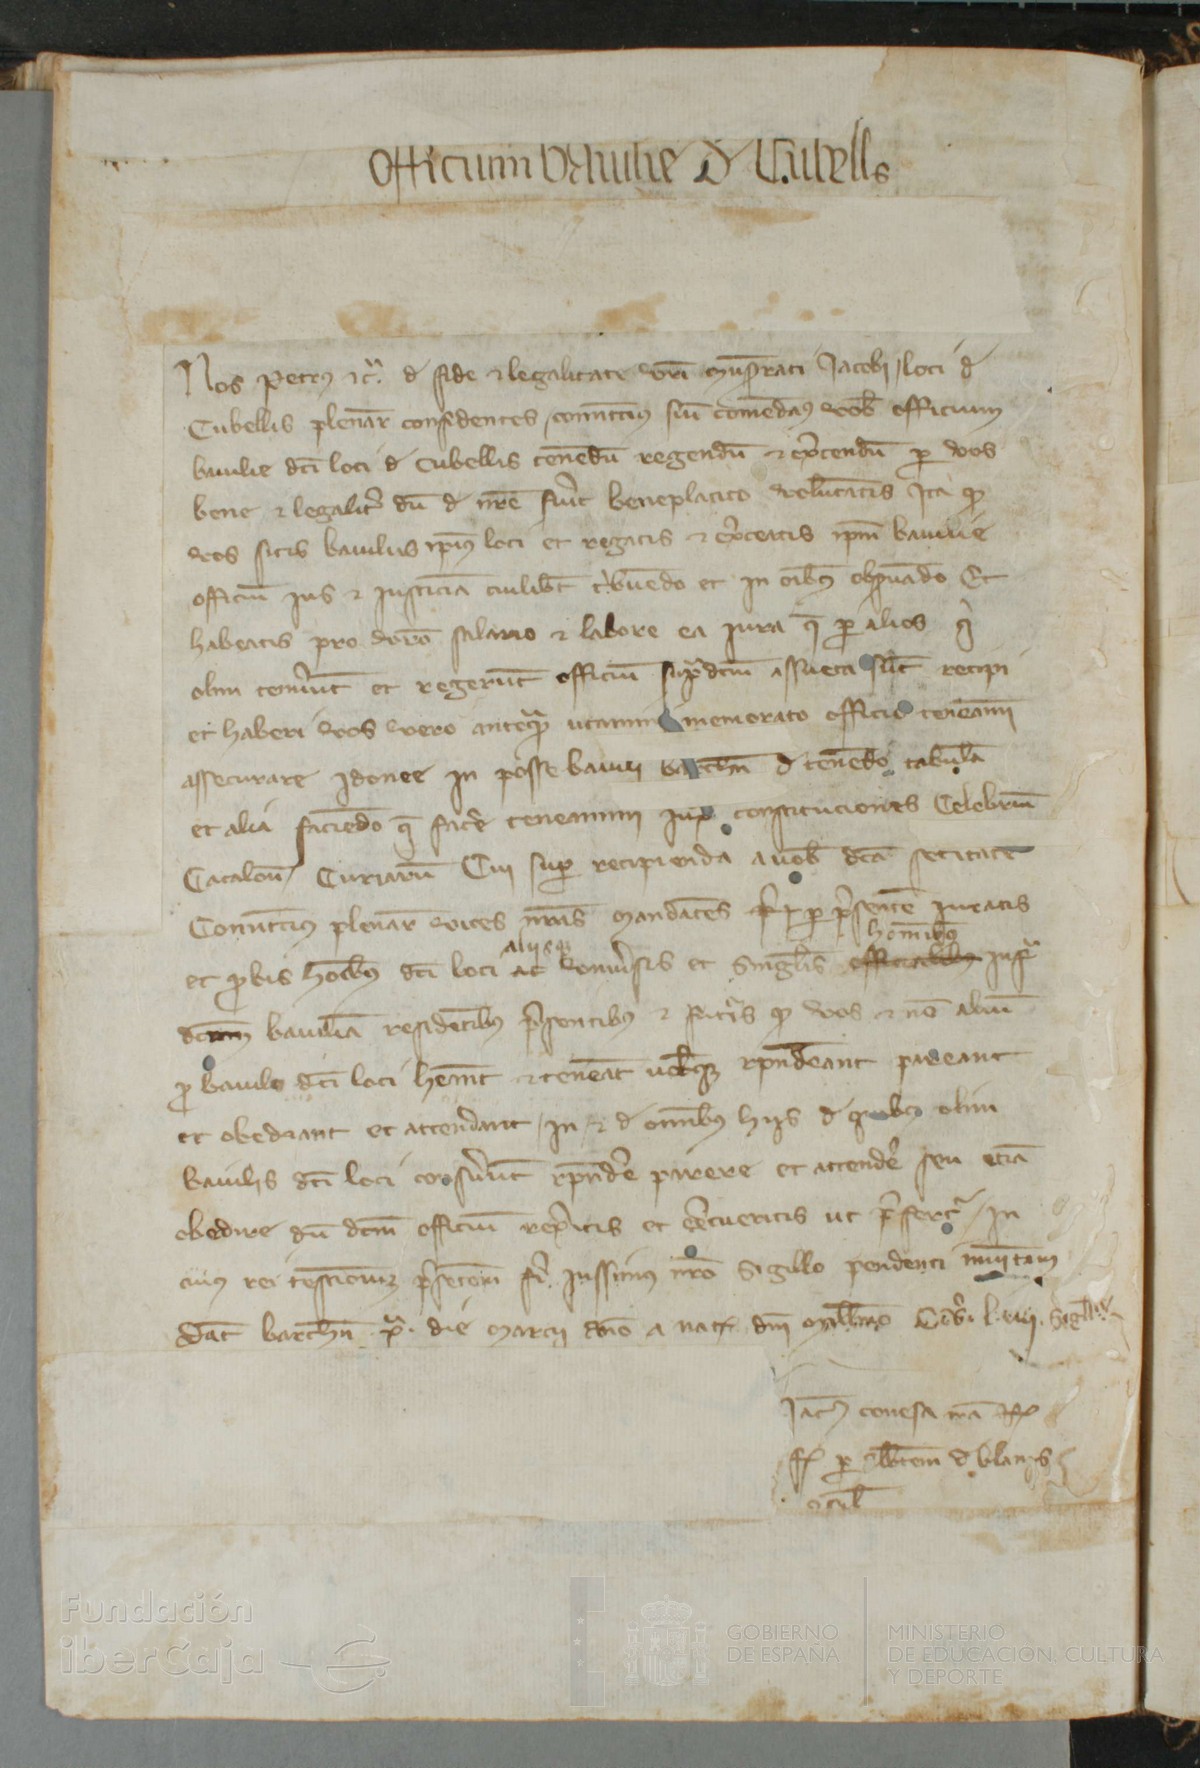 Officium Baiulie de Cubells
Nos Petrus etc. de fide et legalitate vestri Jacobi loci de
Cubellis plenar confidentes comittimus sive comendamus vobis officium
baiulie dicti loci de Cubellis tenendum regendum et exercendum per vos
bene et legaliter dum de nostre fuerit beneplacito voluntatis Ita quod
vos sitis baiulus ipsius loci et regatis et exerceatis ipsum baiulie
officium ius et iusticiam cuilibet tribuendo et in omnibus observando Et
habeatis pro vestro salario et labore ea iura que per alios qui
olim tenuerunt et regerunt officium supradictum assueta sunt recipi
et haberi vos vero antequam utamini memorato officio teneamini
assecurare idonee in posse baiuli barchn de tenendo tabulam
et alia faciendo que facere teneamini iuxta constituciones Celebrium
Catalonie Curiarum Cui super recipienda a vobis dicta securitate
Comittimus plenar vices nostras mandantes per presentem iuratis
et probis hominibus dicti loci ac aliisque universis et singulis officialibus hominibus infra
dictam baiuliam residentibus presentibus et futuris quod vos et non alium
pro baiulo dicti loci habeant et teneant vobisque respondeant pareant
et obediant et attendant in et de omnibus hiis de quibus olim
baiulis dicti loci consueverunt respondere parere et attendere seu etiam
obedire dum dictum officium rexeritis et exercueritis ut prefertur In
cuius rei testimonium presentem fieri iussimus nostro sigillo pendenti munitam
Dat barchn prima die marcii anno a nat domini millesimo CCC l.viii.
Jacobus conesa
de blanis